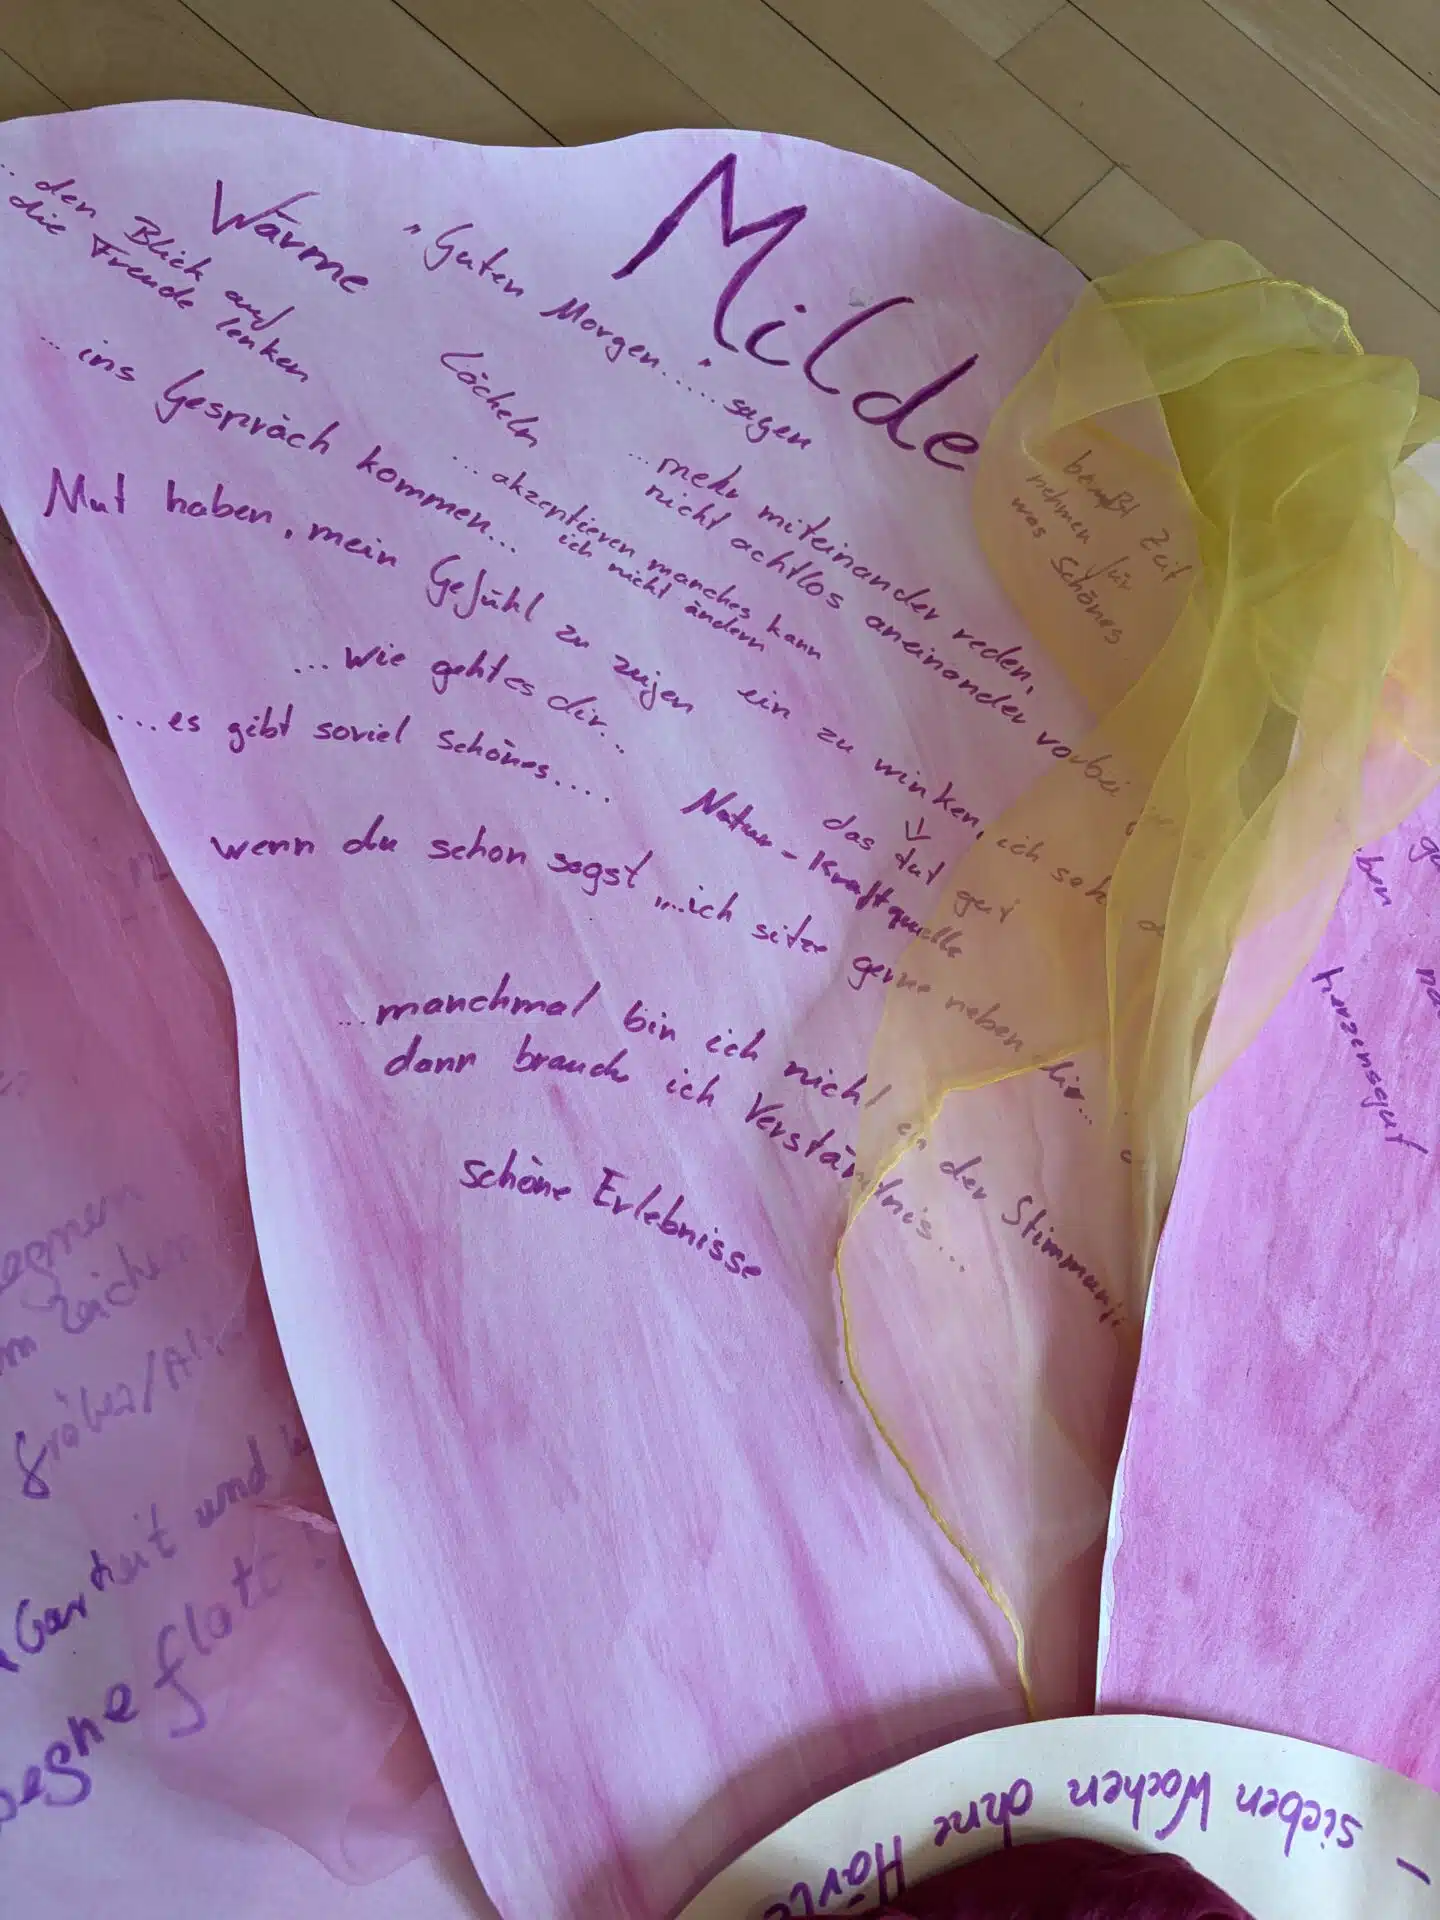 Milde
Wärme
„Guten Morgen....." sagen
... den Blick auf
die Freude lenken
Lächeln
... ins Gespräch kommen...
... mehr miteinander reden,
nicht achtlos aneinander vorbei
... akzeptieren manches kann
ich nicht ändern
bewußt Zeit
nehmen für
was Schönes
Mut haben, mein Gefühl zu zeigen
ein zu winken, ich seh
das tut gut
... wie geht es dir...
... es gibt soviel Schönes....
Natur - Kraftquelle
wenn du schon sagst „...ich sitze gerne neben dir...
... manchmal bin ich nicht in der Stimmung
dann brauch ich Verständnis...
schöne Erlebnisse
herzensgut
und
flott!
- sieben Wochen ohne